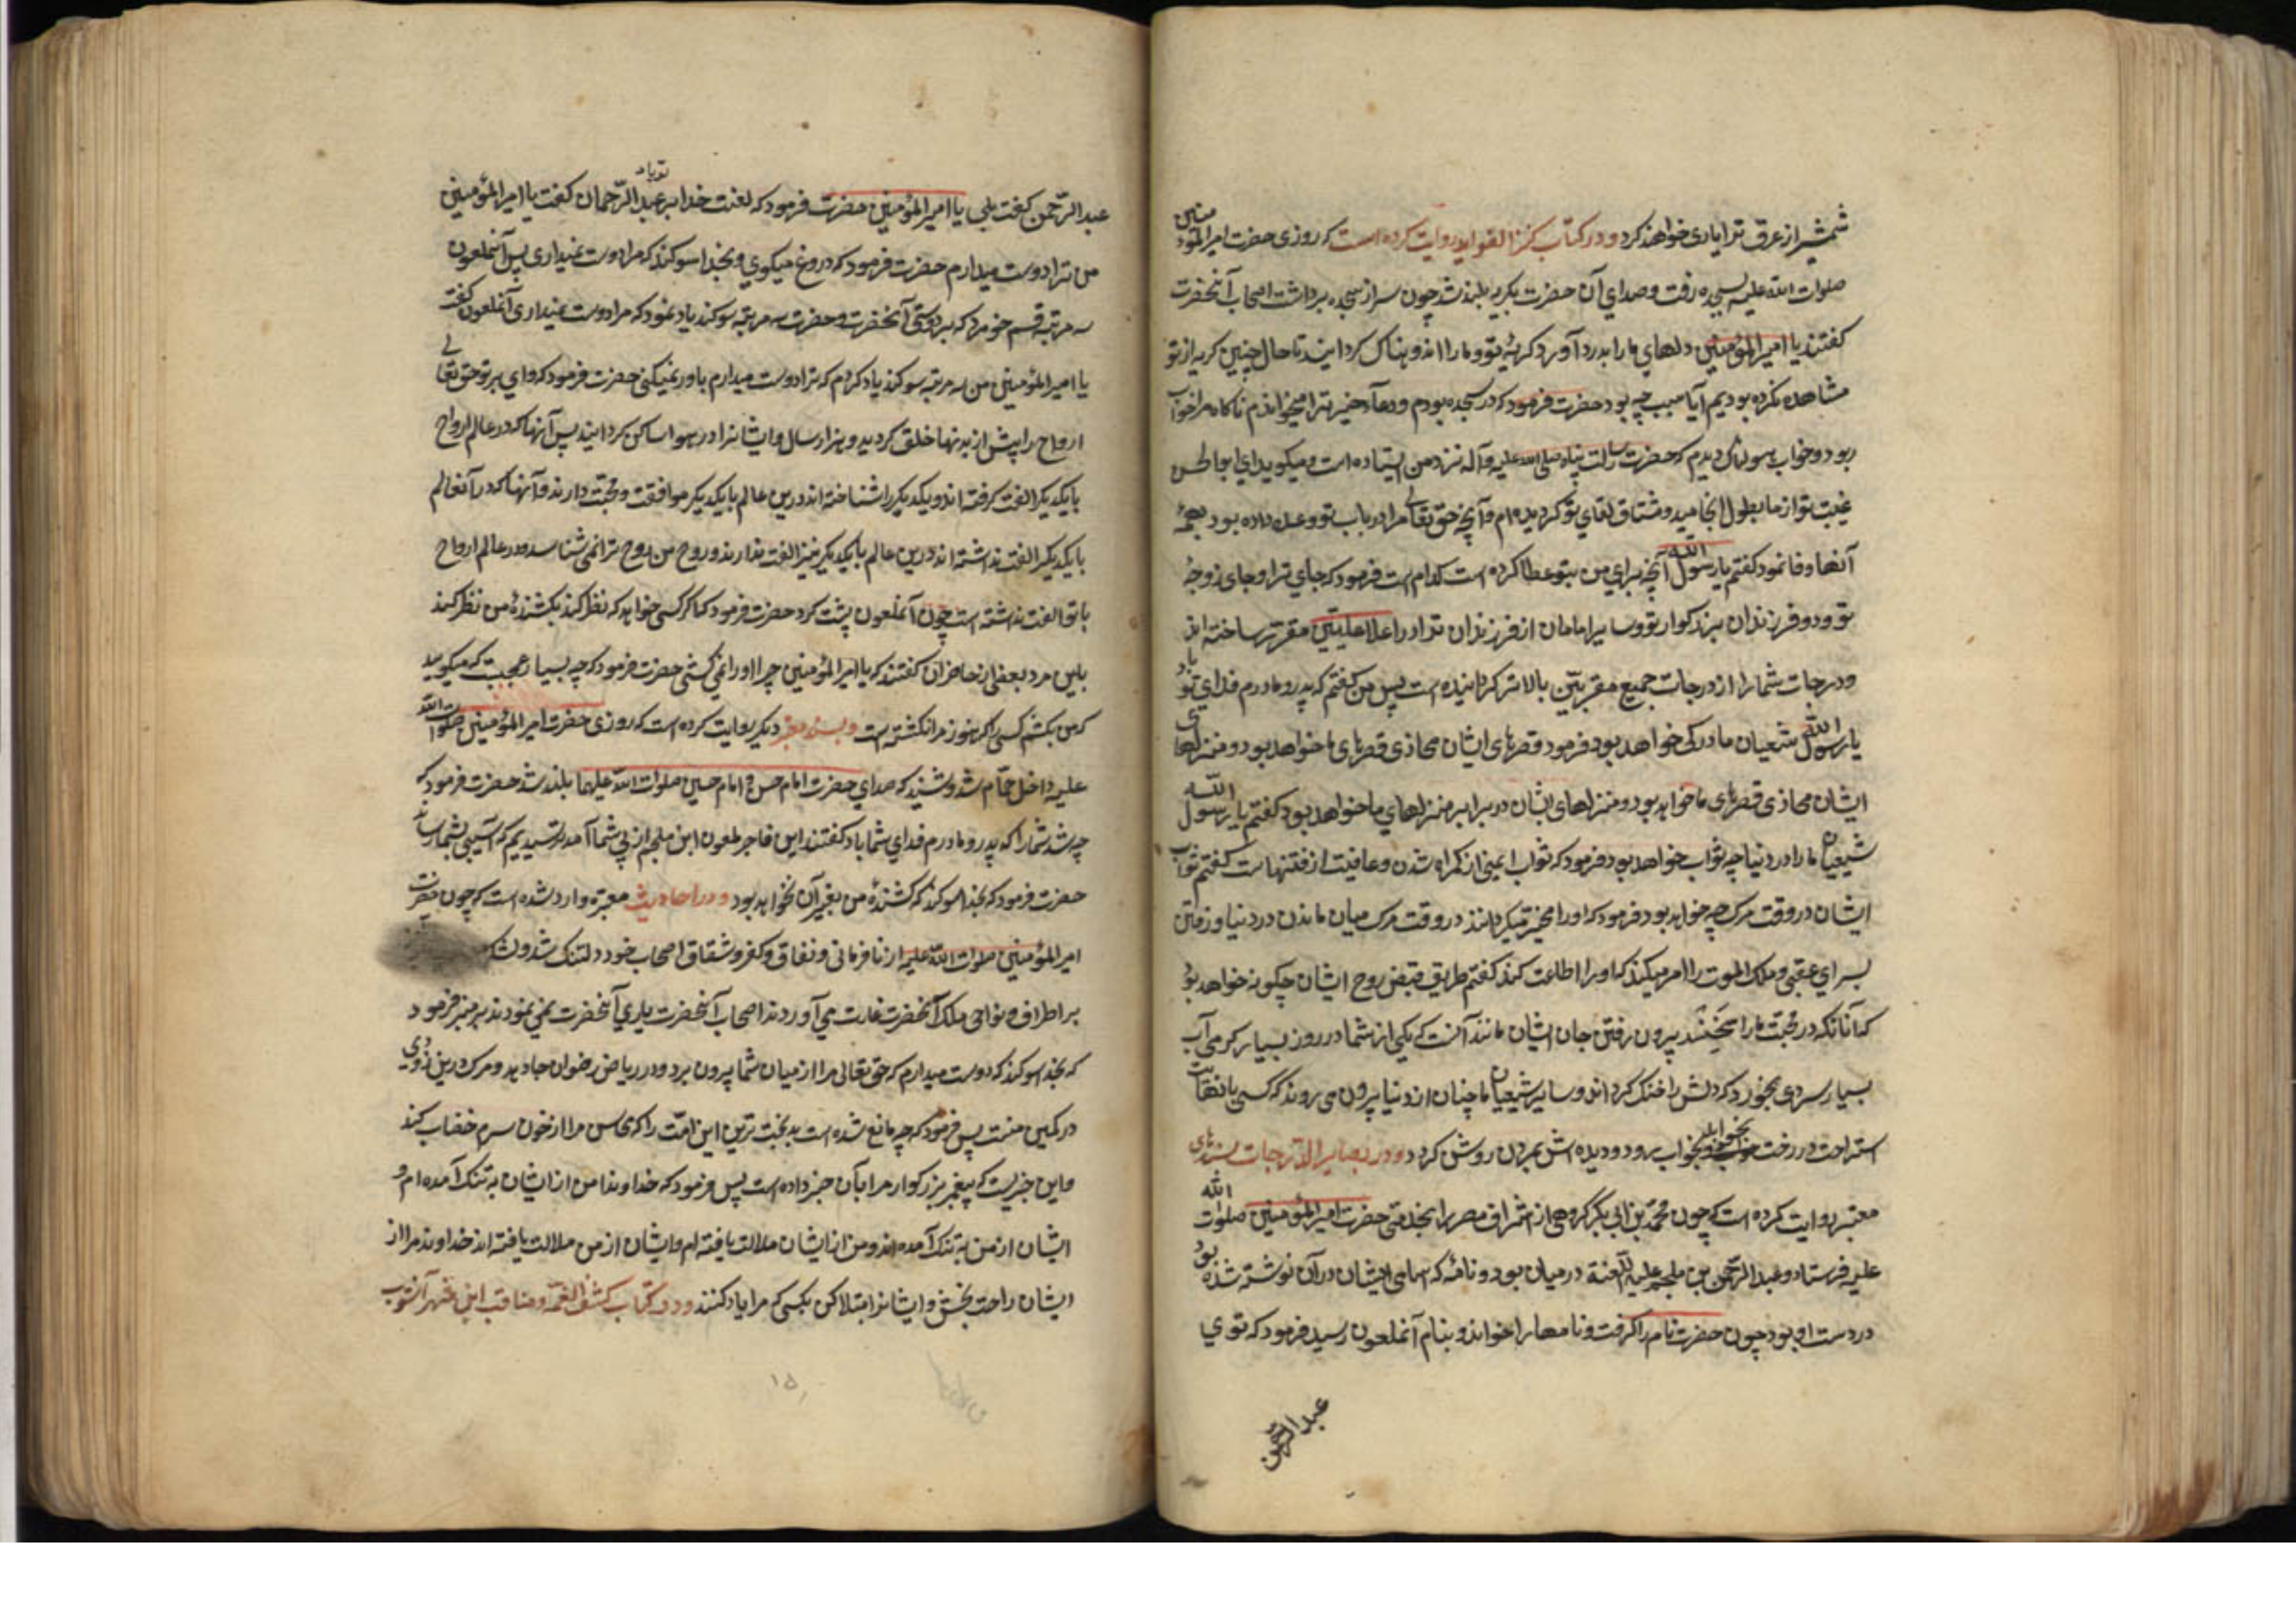 شمشیر از عرق ترا یاری خواهند کرد و در کتاب کنز الفواید روایت کرده است که روزی حضرت امیر المؤمنین
صلوات الله علیه بسجده رفت و صدای آن حضرت بکریه بلند شد چون سر از سجده برداشت اصحاب آنحضرت
کفتند یا امیر المؤمنین دلهای ما را بدرد آورد کریهٔ تو و ما را اندوهناک کردانید تا حال چنین کریه از تو
مشاهده نکرده بودیم آیا سبب چه بود حضرت فرمود که در سجده بودم و دعآء خیر ترا میخواندم ناکاه مرا خواب
ربود و خواب هولناک دیدم که حضرت رسالت پناه صلی الله علیه وآله نزد من ایستاده است و میکوید ای ابو الحسن
غیبت تو از ما بطول انجامید و مشتاق لقای تو کردیده‌ام و آنچه حق تعالی مرا در باب تو وعده داده بود بهمهٔ
آنها وفا نمود کفتم یا رسول الله آنچه برای من بتو عطا کرده است کدام است فرمود که جای ترا و جای زوجهٔ
تو و دو فرزندان بزرکوار تو و سایر امامان از فرزندان ترا در اعلا علیین مقرر ساخته اند
و درجات شما را از درجات جمیع مقربین بالاتر کردانیده است پس من کفتم که پدر و مادرم فدای تو باد
یا رسول الله شیعیان ما در کی خواهد بود فرمود قصرهای ایشان محاذی قصرهای ما خواهد بود و منزلهای
ایشان محاذی قصرهای ما خواهد بود و منزلهای ایشان در برابر منزلهای ما خواهد بود کفتم یا رسول الله
شیعیان ما را در دنیا چه ثواب خواهد بود فرمود که ثواب ایمنی از کمراه شدن و عافیت از فتنها است کفتم ثواب
ایشان در وقت مرک چه خواهد بود فرمود که او را مخیر میکردانند در وقت مرک میان ماندن در دنیا و رفتن
برای عقبی و ملک الموت را امر میکند که او را اطاعت کند کفتم طریق قبض روح ایشان چکونه خواهد بود
که آنانکه در محبت ما راسخ‌ند بیرون رفتن جان ایشان مانند آنست که یکی از شما در روز بسیار کرمی آب
بسیار سردی بخورد که دلش را خنک کرداند و سایر شیعیان ما چنان از دنیا بیرون می روند که کسی بانهایت
استراحت در رخت خواب خود بخواب رود و دیده اش بمردن روشن کردد و در بصایر الدرجات بسندهای
معتبر روایت کرده است که چون محمد بن ابی بکر کروهی از اشراف مصر را بخدمت حضرت امیر المؤمنین صلوات الله
علیه فرستاد و عبد الرحمن بن ملجم علیه اللعنة در میان بود و نامهٔ که اسامی ایشان در آن نوشته شده بود
در دست او بود چون حضرت نامه را کرفت و نامها را خواند و بنام آنملعون رسید فرمود که توی
عبد الرحمن
عبد الرحمن کفت بلی یا امیر المؤمنین حضرت فرمود که لعنت خدا بر عبد الرحمان تو باد کفت یا امیر المؤمنین
من ترا دوست میدارم حضرت فرمود که دروغ میکوی و بخدا سوکند که مرا دوست نمیداری پس آنملعون
سه مرتبه قسم خورد که بر دوستی آنحضرت و حضرت سه مرتبه سوکند یاد نمود که مرا دوست نمیداری آنملعون کفت
یا امیر المؤمنین من سه مرتبه سوکند یاد کردم که ترا دوست میدارم باور نمیکنی حضرت فرمود که وای بر تو حق تعالی
ارواح را پیش از بدنها خلق کردید و هزار سال و ایشانرا در هوا ساکن کردانید پس آنها که در عالم ارواح
با یکدیکر الفت کرفته اند و یکدیکر را شناخته اند درین عالم با یکدیکر موافقت و محبت دارند و آنها که در آنعالم
با یکدیکر الفت نداشته اند درین عالم با یکدیکر نیز الفت ندارند و روح من روح ترا نمی شناسد و در عالم ارواح
با تو الفت نداشته است چون آنملعون پشت کرد حضرت فرمود که اکر کسی خواهد که نظر کند بکشندهٔ من نظر کند
باین مرد بعضی از حاضران کفتند که یا امیر المؤمنین چرا او را نمی کشی حضرت فرمود که چه بسیار عجیبست که میکویید
که من بکشم کسی را که هنوز مرا نکشته است و بسند معتبر دیکر روایت کرده است که روزی حضرت امیر المؤمنین صلوات الله
علیه داخل حمام شد و شنید که صدای حضرت امام حسن و امام حسین صلوات الله علیهما بلند شد حضرت فرمود که
چه شد شما را که پدر و مادرم فدای شما باد کفتند این فاجر ملعون ابن ملجم از پی شما آمد ترسیدیم که آسیبی بشما رساند
حضرت فرمود که بخدا سوکند که کشندهٔ من بغیر آن نخواهد بود و در احادیث معتبره وارد شده است که چون حضرت
امیر المؤمنین صلوات الله علیه از نافرمانی و نفاق و کفر و شقاق اصحاب خود دلتنک شد و لشکر
بر اطراف و نواحی ملک آنحضرت غارت می آوردند اصحاب آنحضرت یاری آنحضرت نمی نمودند بر منبر فرمود
که بخدا سوکند که دوست میدارم که حق تعالی مرا از میان شما بیرون برد و در ریاض رضوان جا دهد و مرک درین زودی
در کمین منست پس فرمود که چه مانع شده است بدبخت ترین این امت را که محاسن مرا از خون سرم خضاب کند
و این خبریست که پیغمبر بزرکوار مرا بآن خبر داده است پس فرمود که خداوندا من از ایشان به تنک آمده ام و
ایشان از من به تنک آمده اند و من از ایشان ملالت یافته ام و ایشان از من ملالت یافته اند خداوندا مرا از
ایشان راحت بخش و ایشانرا مبتلا کن بکسی که مرا یاد کنند و در کتاب کشف الغمه و مناقب ابن شهر آشوب
۱۵